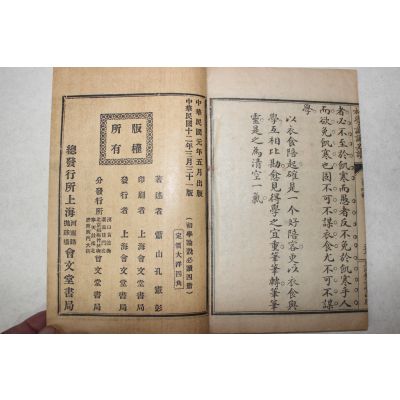 者必不至於飢寒而愚者反不免於飢寒乎人
而欲免飢寒也固不可不謀衣食尤不可不謀
學
以衣食陪起確是一个好陪客更以衣食與
學互相比勘愈見得學之宜重筆筆轉筆筆
靈是之為清空一氣
中華民國元年五月出版
中華民國十二年三月二十一版
(初學論說必讀四册)
定價大洋四角
著述者 雷山孔憲彭
印刷者 上海會文堂書局
發行者 上海會文堂書局
分發行所 會文堂書局
版權
所有
總發行所上海 河南路 拋球場 會文堂書局